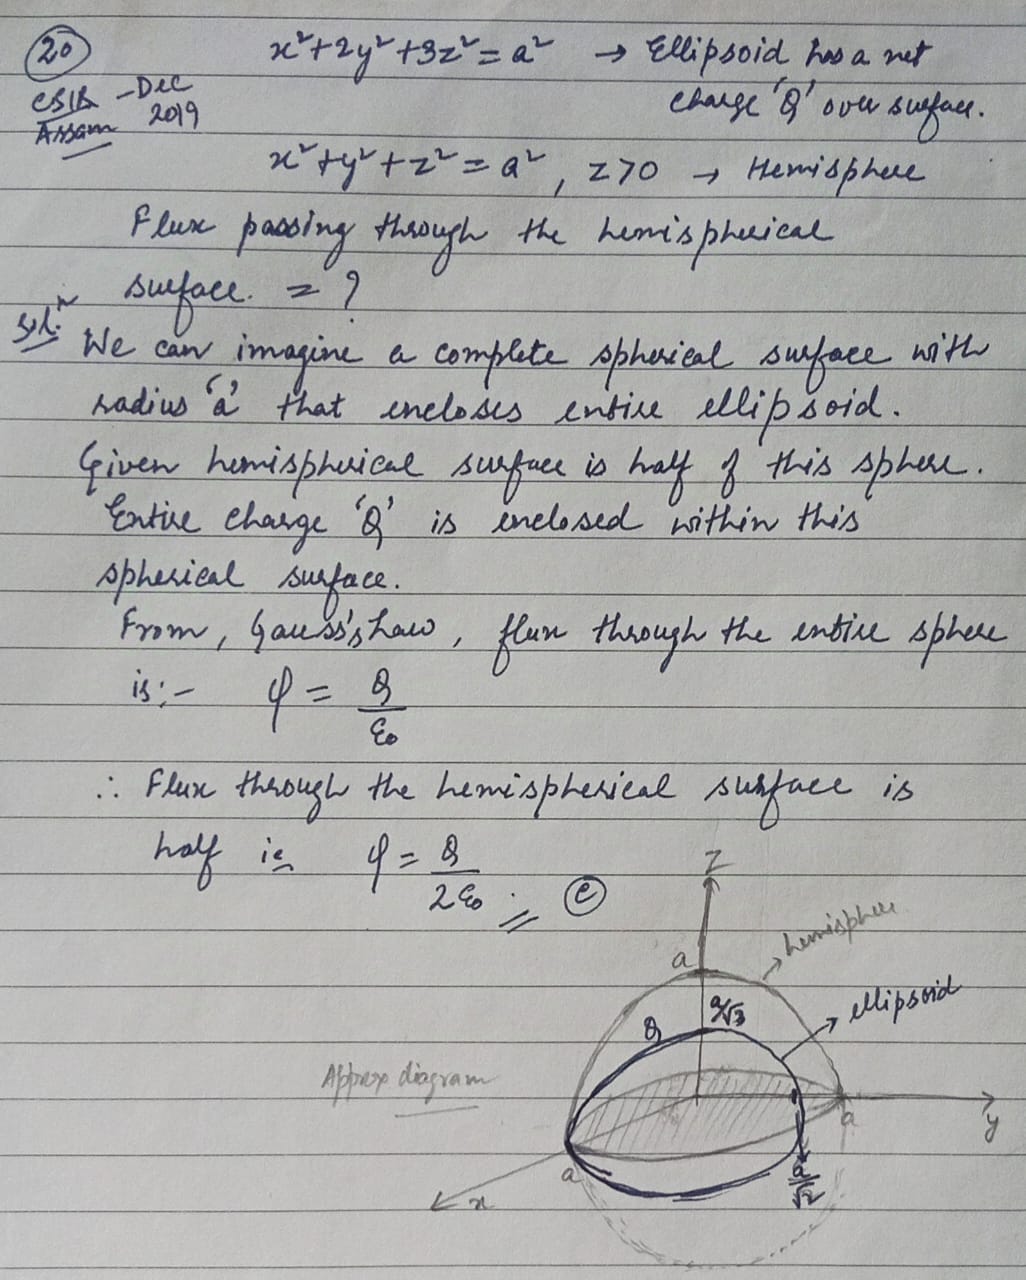 20 x²+2y²+3z² = a² → Ellipsoid has a net
CSIR - Dec 2019 charge 'Q' over surface.
Assam
x²+y²+z² = a², z>0 → Hemisphere
Flux passing through the hemispherical
surface. = ?
Solⁿ. We can imagine a complete spherical surface with
radius 'a' that encloses entire ellipsoid.
Given hemispherical surface is half of this sphere.
Entire charge 'Q' is enclosed within this
spherical surface.
From, Gauss's Law, flux through the entire sphere
is:- φ = Q/ε₀
∴ Flux through the hemispherical surface is
half ie φ = Q/2ε₀ . c
z
hemisphere
a
ellipsoid
Q a/√3
Approx diagram
a
y
a
a/√2
x